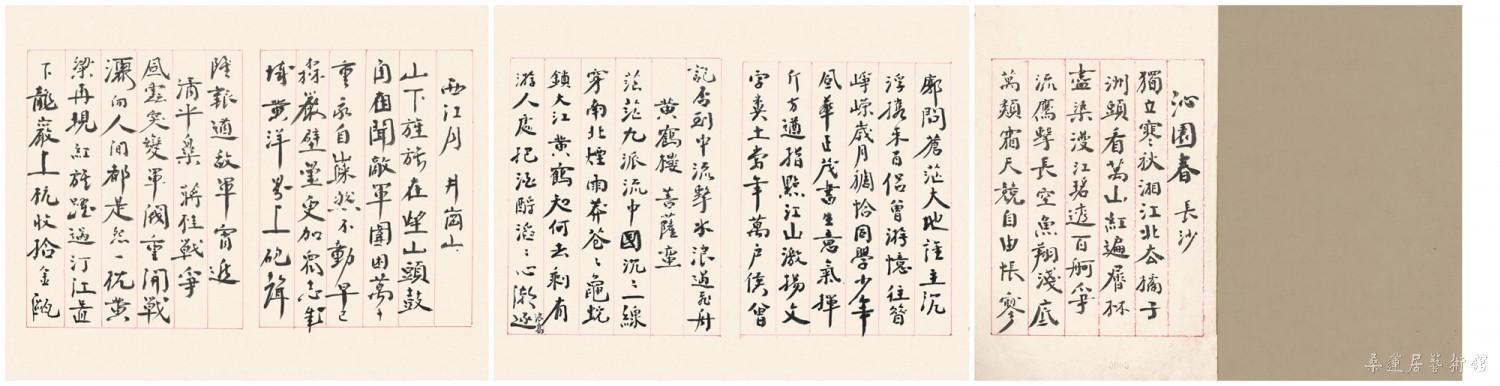 沁園春 長沙
獨立寒秋湘江北去橘子
洲頭看萬山紅遍層林
盡染漫江碧透百舸爭
流鷹擊長空魚翔淺底
萬類霜天競自由悵寥
廓問蒼茫大地誰主沉
浮攜來百侶曾游憶往昔
崢嶸歲月稠恰同學少年
風華正茂書生意氣揮
斤方遒指點江山激揚文
字糞土當年萬戶侯曾
記否到中流擊水浪遏飛舟
黄鶴樓 菩薩蠻
茫茫九派流中國沉〻一線
穿南北煙雨莽苍〻龜蛇
鎖大江黄鶴知何去剩有
游人處把酒酹滔〻心潮逐浪高
西江月 井崗山
山下旌旗在望山頭鼓
角相聞敵軍圍困萬千
重我自巋然不動早已
森嚴壁壘更加衆志成
城黄洋界上砲聲
隆報道敵軍宵遁
清平樂 蔣桂戰爭
風雲突變軍閥重開戰
灑向人間都是怨一枕黄
粱再現紅旗躍過汀江直
下龍巖上杭收拾金甌
桑蓮居藝術館